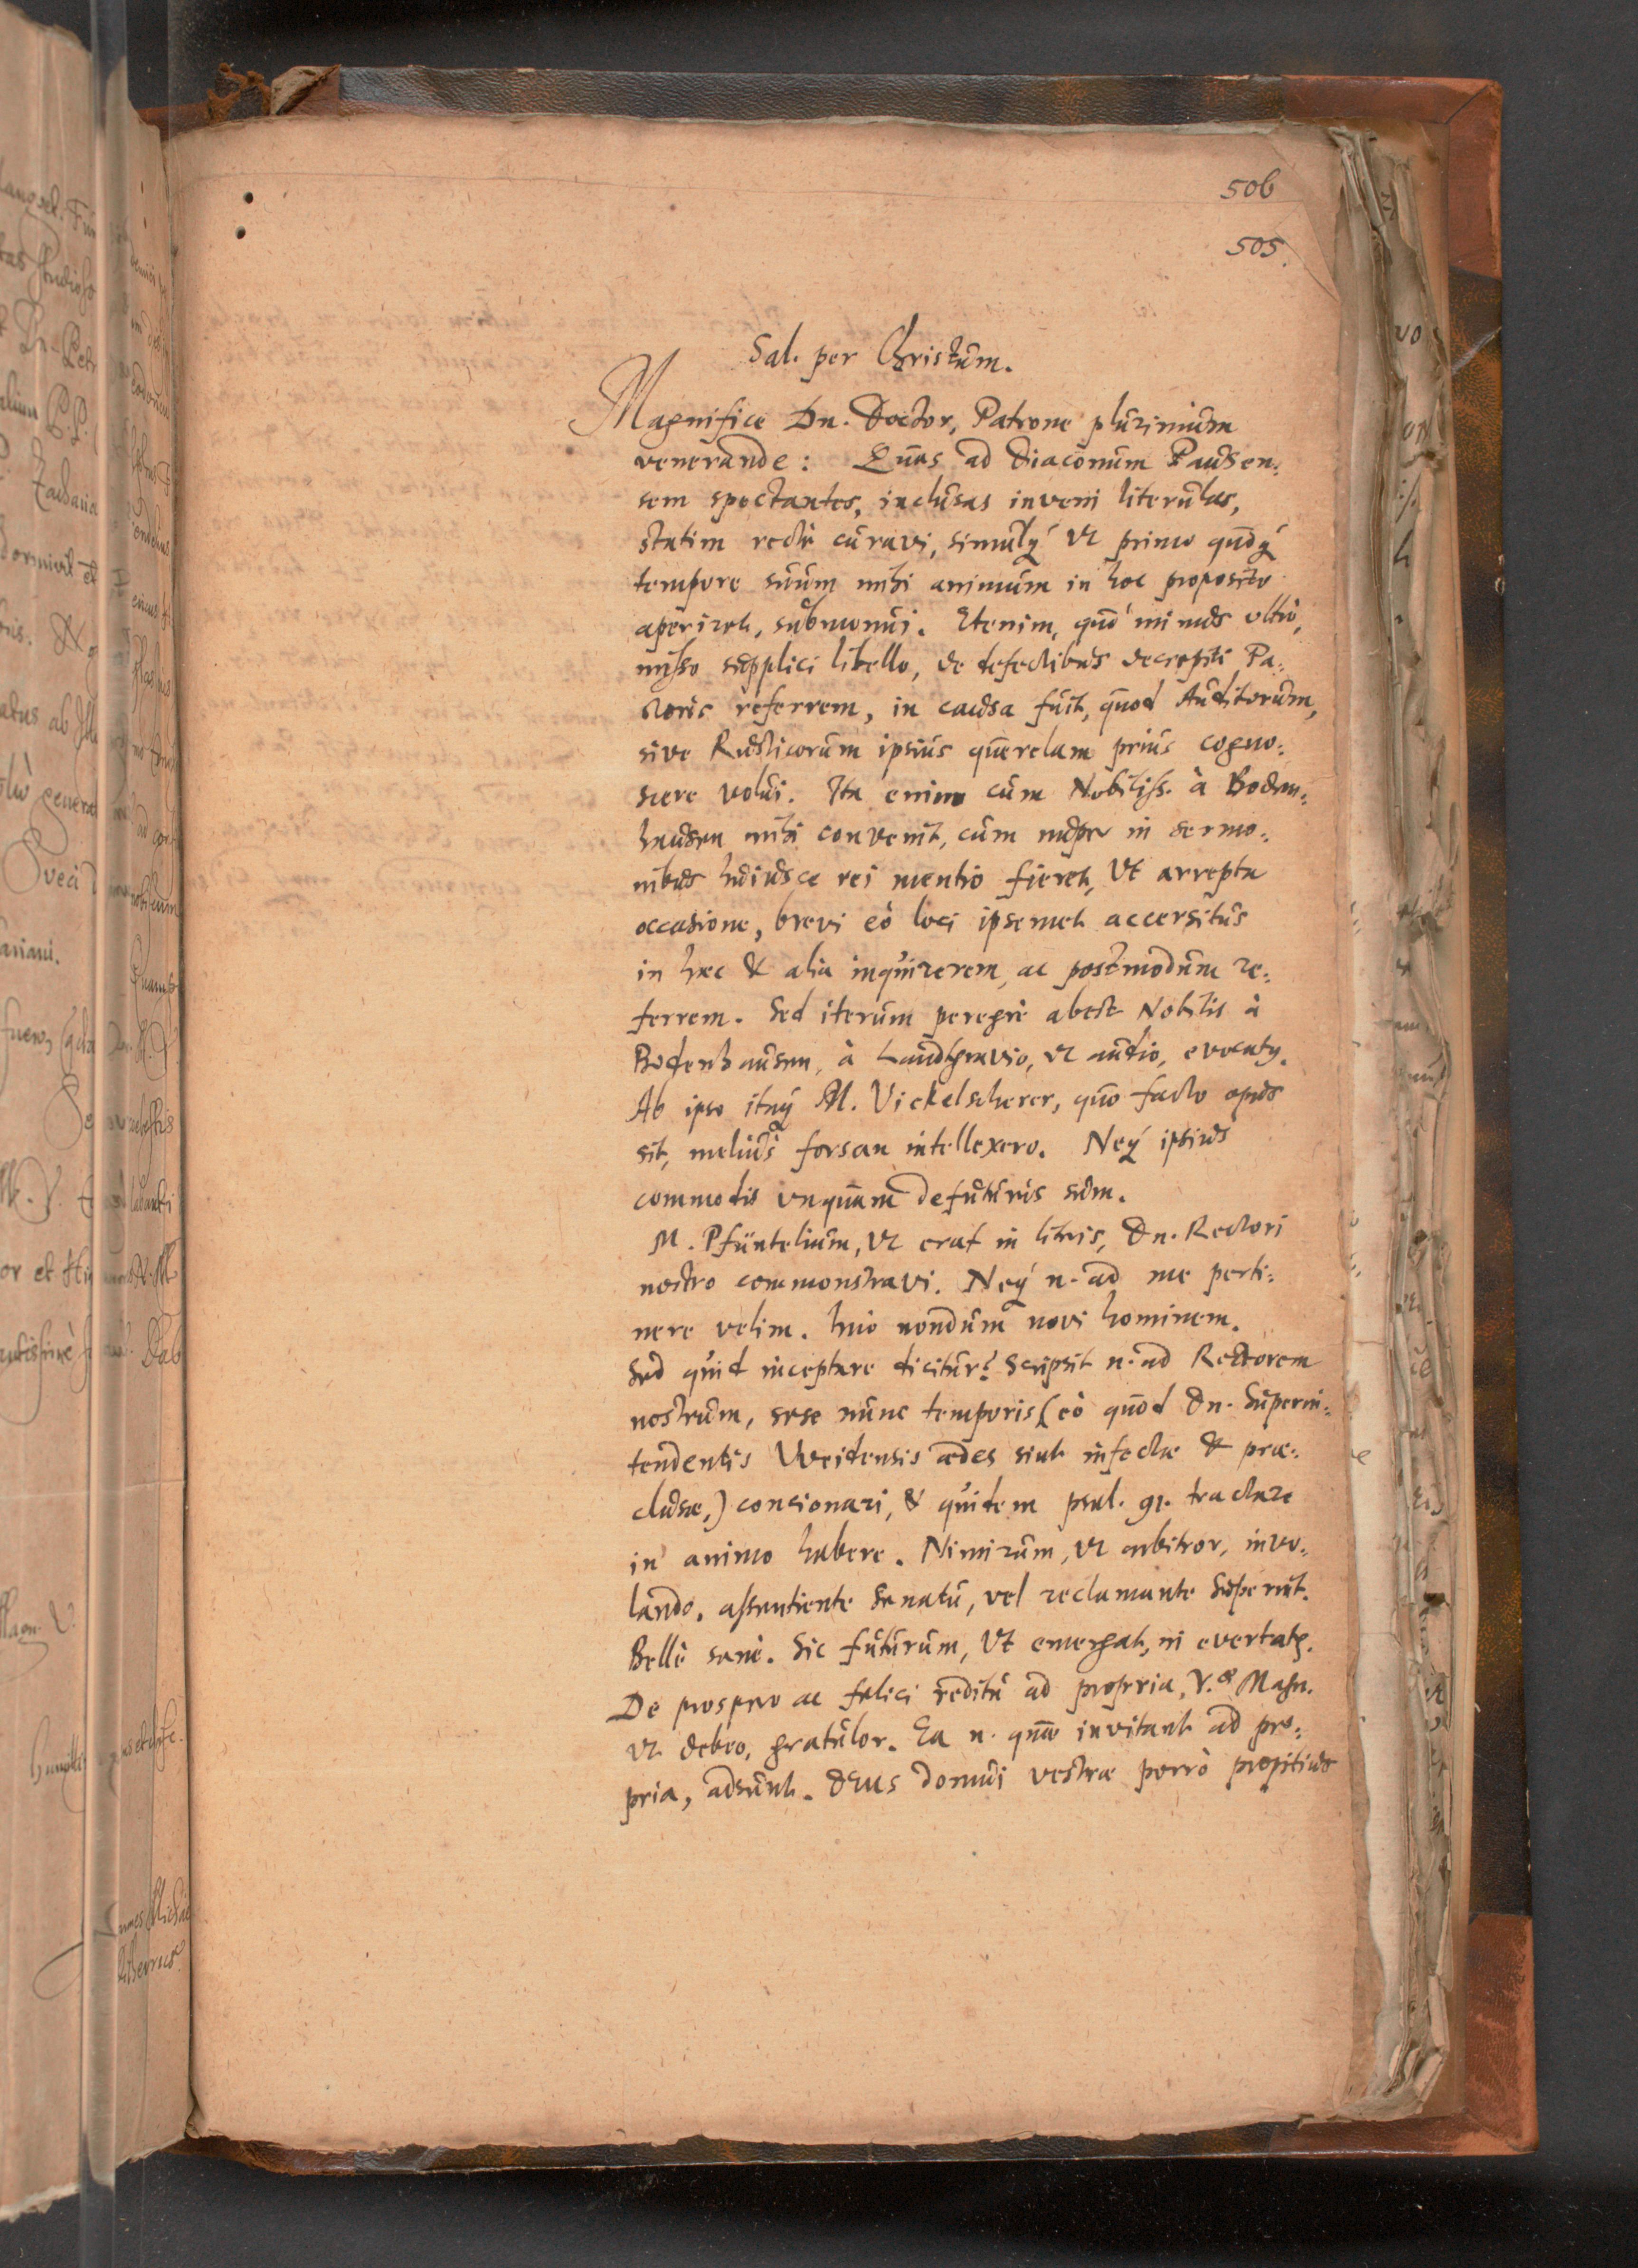 506
505.
Sal. per Christum.
Magnifice Dn. Doctor, Patrone plurimùm
venerande: Quas ad Diaconum Pausen-
sem spectantes, inclusas inveni literulas,
statim rectè curavi, simulq́ ut primo quoq́
tempore suum mihi animum in hoc proposito
aperiret, submonui. Etenim, quò minus ultrò,
misso supplici libello, de defectibus decrepiti Pa-
storis referrem, in causa fuit, quod Auditorum,
sive Rusticorum ipsius querelam prius cogno-
scere volui. Ita enim cum Nobiliss. à Boden-
hausen mihi convenit, cùm nuper in sermo-
nibus hujusce rei mentio fieret, ut arrepta
occasione, brevi eò loci ipsemet accersitus
in hæc & alia inquirerem, ac postmodum re-
ferrem. Sed iterùm peregrè abest Nobilis à
Bodenhausen, à Landtgravio, ut audio, evocatꝰ.
Ab ipso itaq́ M. Vickelscherer, quo facto opus
sit, meliùs forsan intellexero. Neq́ ipsius
commodis unquam defuturus sum.
M. Pfüntelium, ut erat in litris, Dn. Rectori
nostro commonstravi. Neq́ n. ad me perti-
nere velim. Imò nondum novi hominem.
Sed quid inceptare dicitur? Scripsit n. ad Rectorem
nostrum, sese nunc temporis (eò quod Dn. Superin-
tendentis Weidensis ædes sint infectæ & præ-
clusæ,) concionari, & quidem psal. 91. tractare
in animo habere. Nimirùm, ut arbitror, invo-
lando, assentiente Senatu, vel reclamante Superint.
Bellè sanè. Sic futurum, ut emergat, ni evertatꝰ.
De prospero ac felici reditu ad propria, V.æ Magn.
ut debeo, gratulor. Ea n. quæ invitant ad pro-
pria, adsunt. DEus domui vestræ porrò propitius